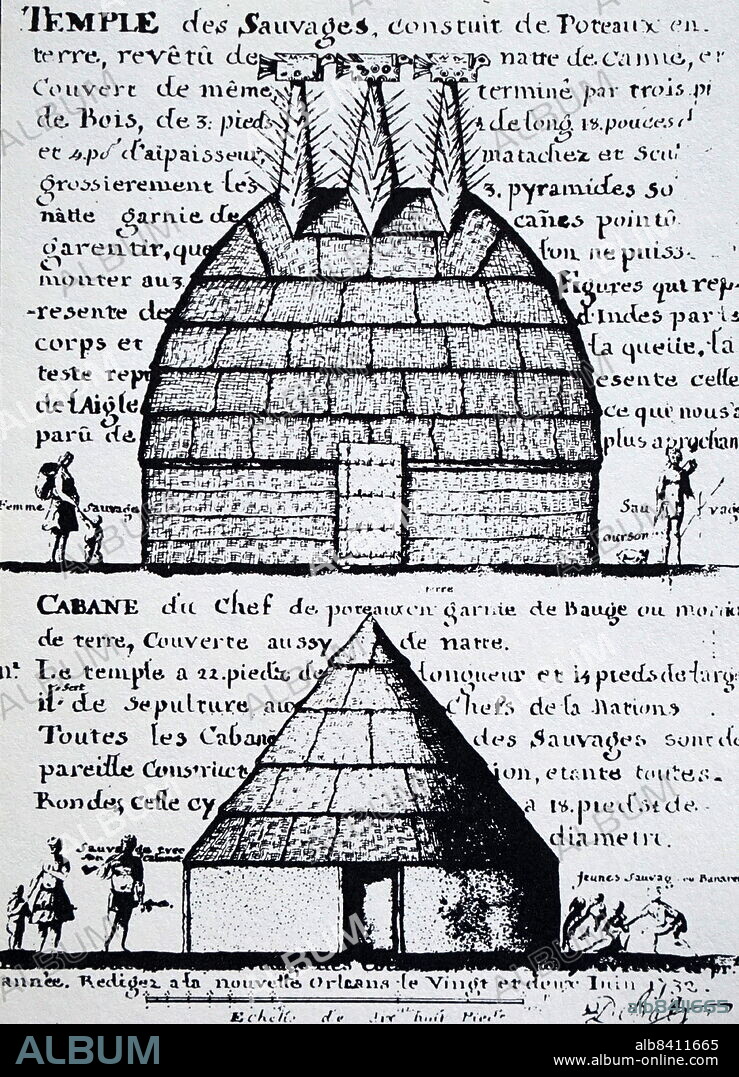 TEMPLE des Sauvages, constuit de Poteaux en
terre, revêtû de natte de Canne, et
Couvert de même terminé par trois pi
de Bois, de 3. pieds de long 18. pouces
et 4. po d'aipaisseur, matachez et
grossierement les 3. pyramides
natte garnie de cañes pointû
garentir, que lon ne puiss
monter aux figures qui rep
-resente de d'Indes par le
corps et la queüe, la
teste repr esente celle
de l'Aigle ce qui nous a
parû de plus aprochan
Femme Sauvage
Sau vage
ourson
terre
CABANE du Chef de poteaux en garnie de Bauge ou
de terre, Couverte aussy de natte.
Le temple a 22. pieds de longueur et 14 pieds de larg
il sert de Sepulture aux Chefs de la Nations
Toutes les Cabane des Sauvages sont de
pareille Construct ion, etante toutes
Rondes, Celle cy a 18. pieds de
diametre.
Jeunes Sauvag
année. Redigez a la nouvelle Orleans le Vingt et deux Juin 1732.
Echelle de dix huit Pieds
ALBUM
alb8411665
ALBUM
alb8411665
www.album-online.com